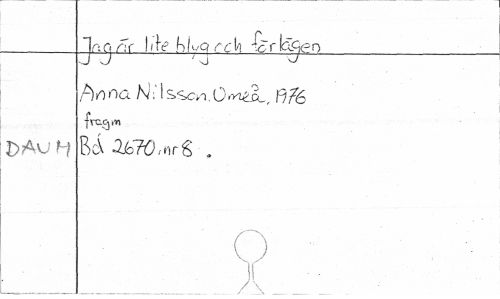 Jag är lite blyg och förlägen
Anna Nilsson, Umeå, 1976
fragm
DAUM Bd 2670, nr 8.